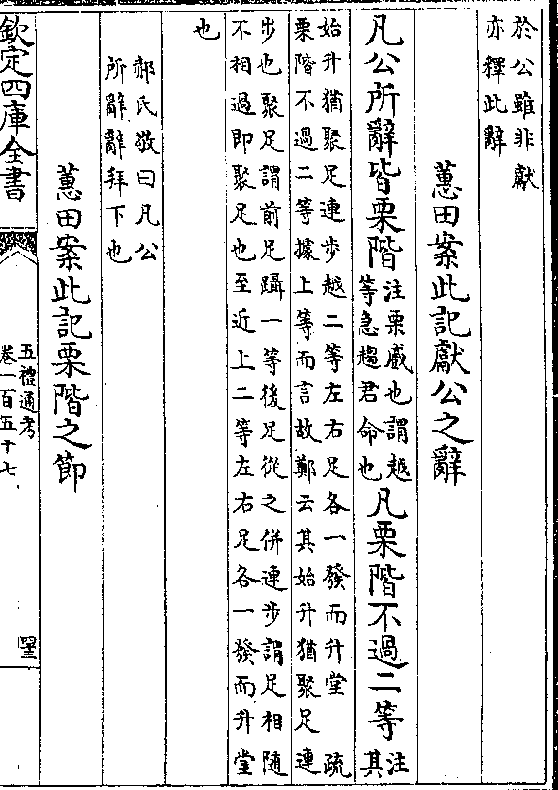 於公雖非獻
亦釋此辭
蕙田案此記獻公之辭
凡公所辭皆栗階
注栗蹙也謂越
等急趨君命也
凡栗階不過二等
注
其
始升猶聚足連步越二等左右足各一發而升堂　疏
栗階不過二等據上等而言故鄭云其始升猶聚足連
步也聚足謂前足躡一等後足從之併連步謂足相隨
不相過即聚足也至近上二等左右足各一發而升堂
也
郝氏敬曰凡公
所辭辭拜下也
蕙田案此記栗階之節
欽定四庫全書
五禮通考
卷一百五十七